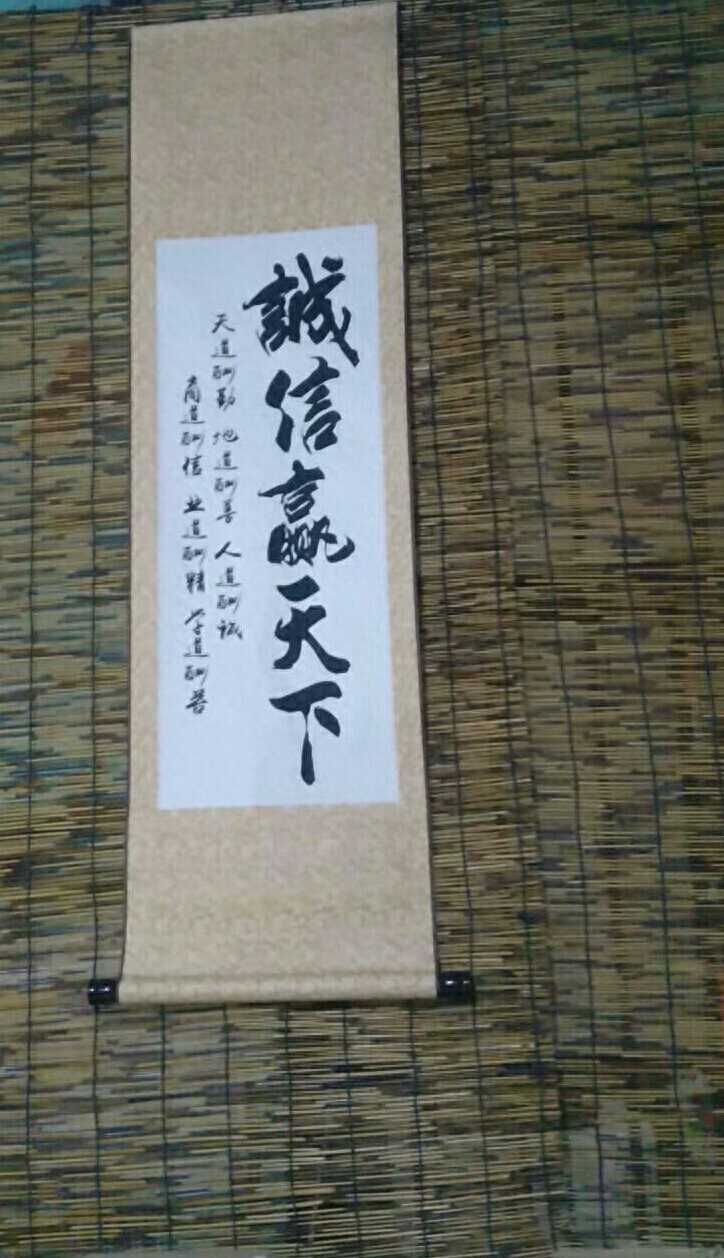 誠信贏天下
天道酬勤 地道酬善 人道酬诚
商道酬信 业道酬精 学道酬苦